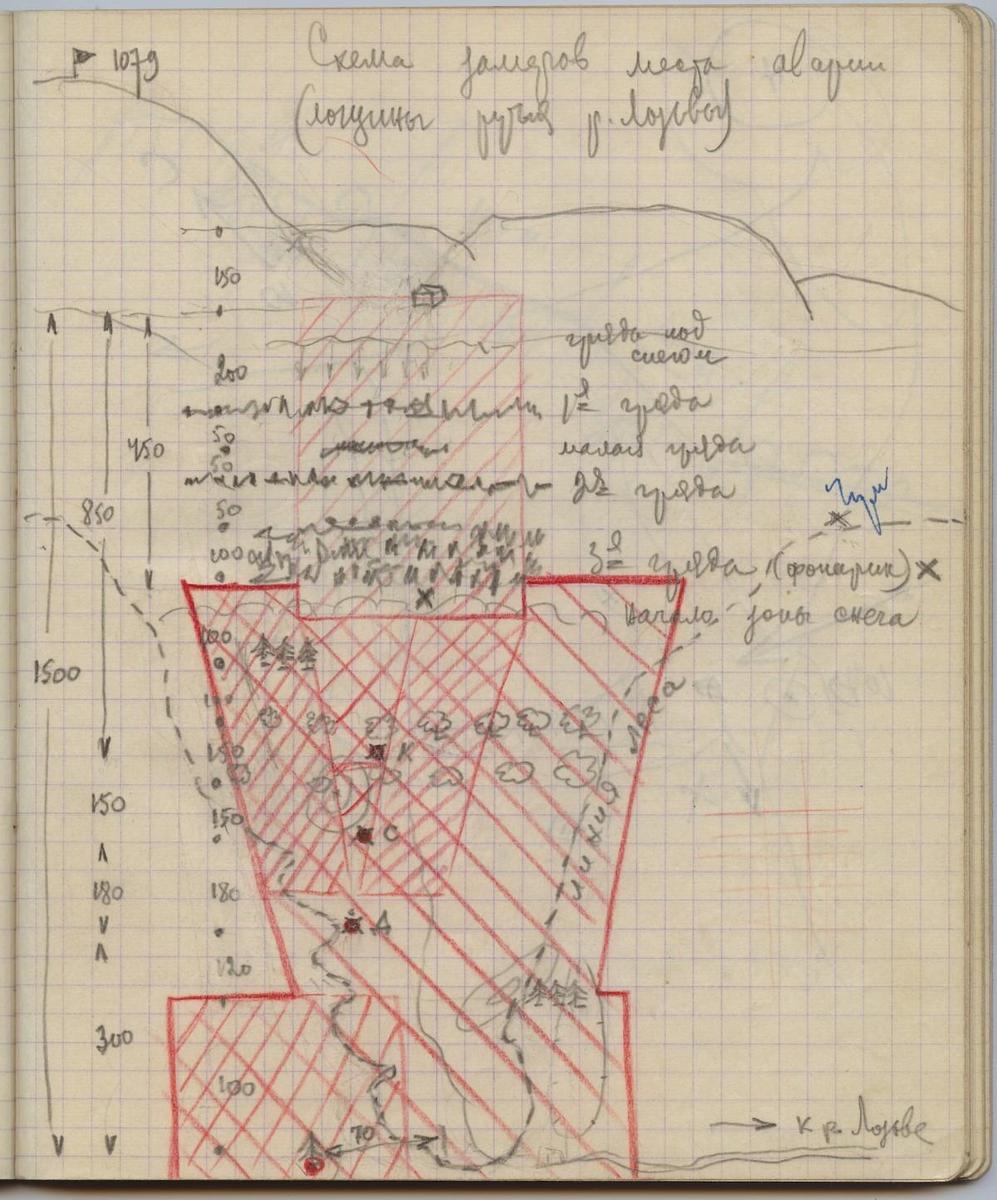 1079
Схема замеров места аварии
(лощины ручья р. Лозьвы)
150
гряда под
снегом
200
1я гряда
50
малая гряда
450
50
2я гряда
50
850
Чум
100
3я гряда (фонарик)
Начало зоны снега
100
1500
100
К
150
150
150
С
линия леса
180
180
Д
120
300
100
70
к р. Лозьве